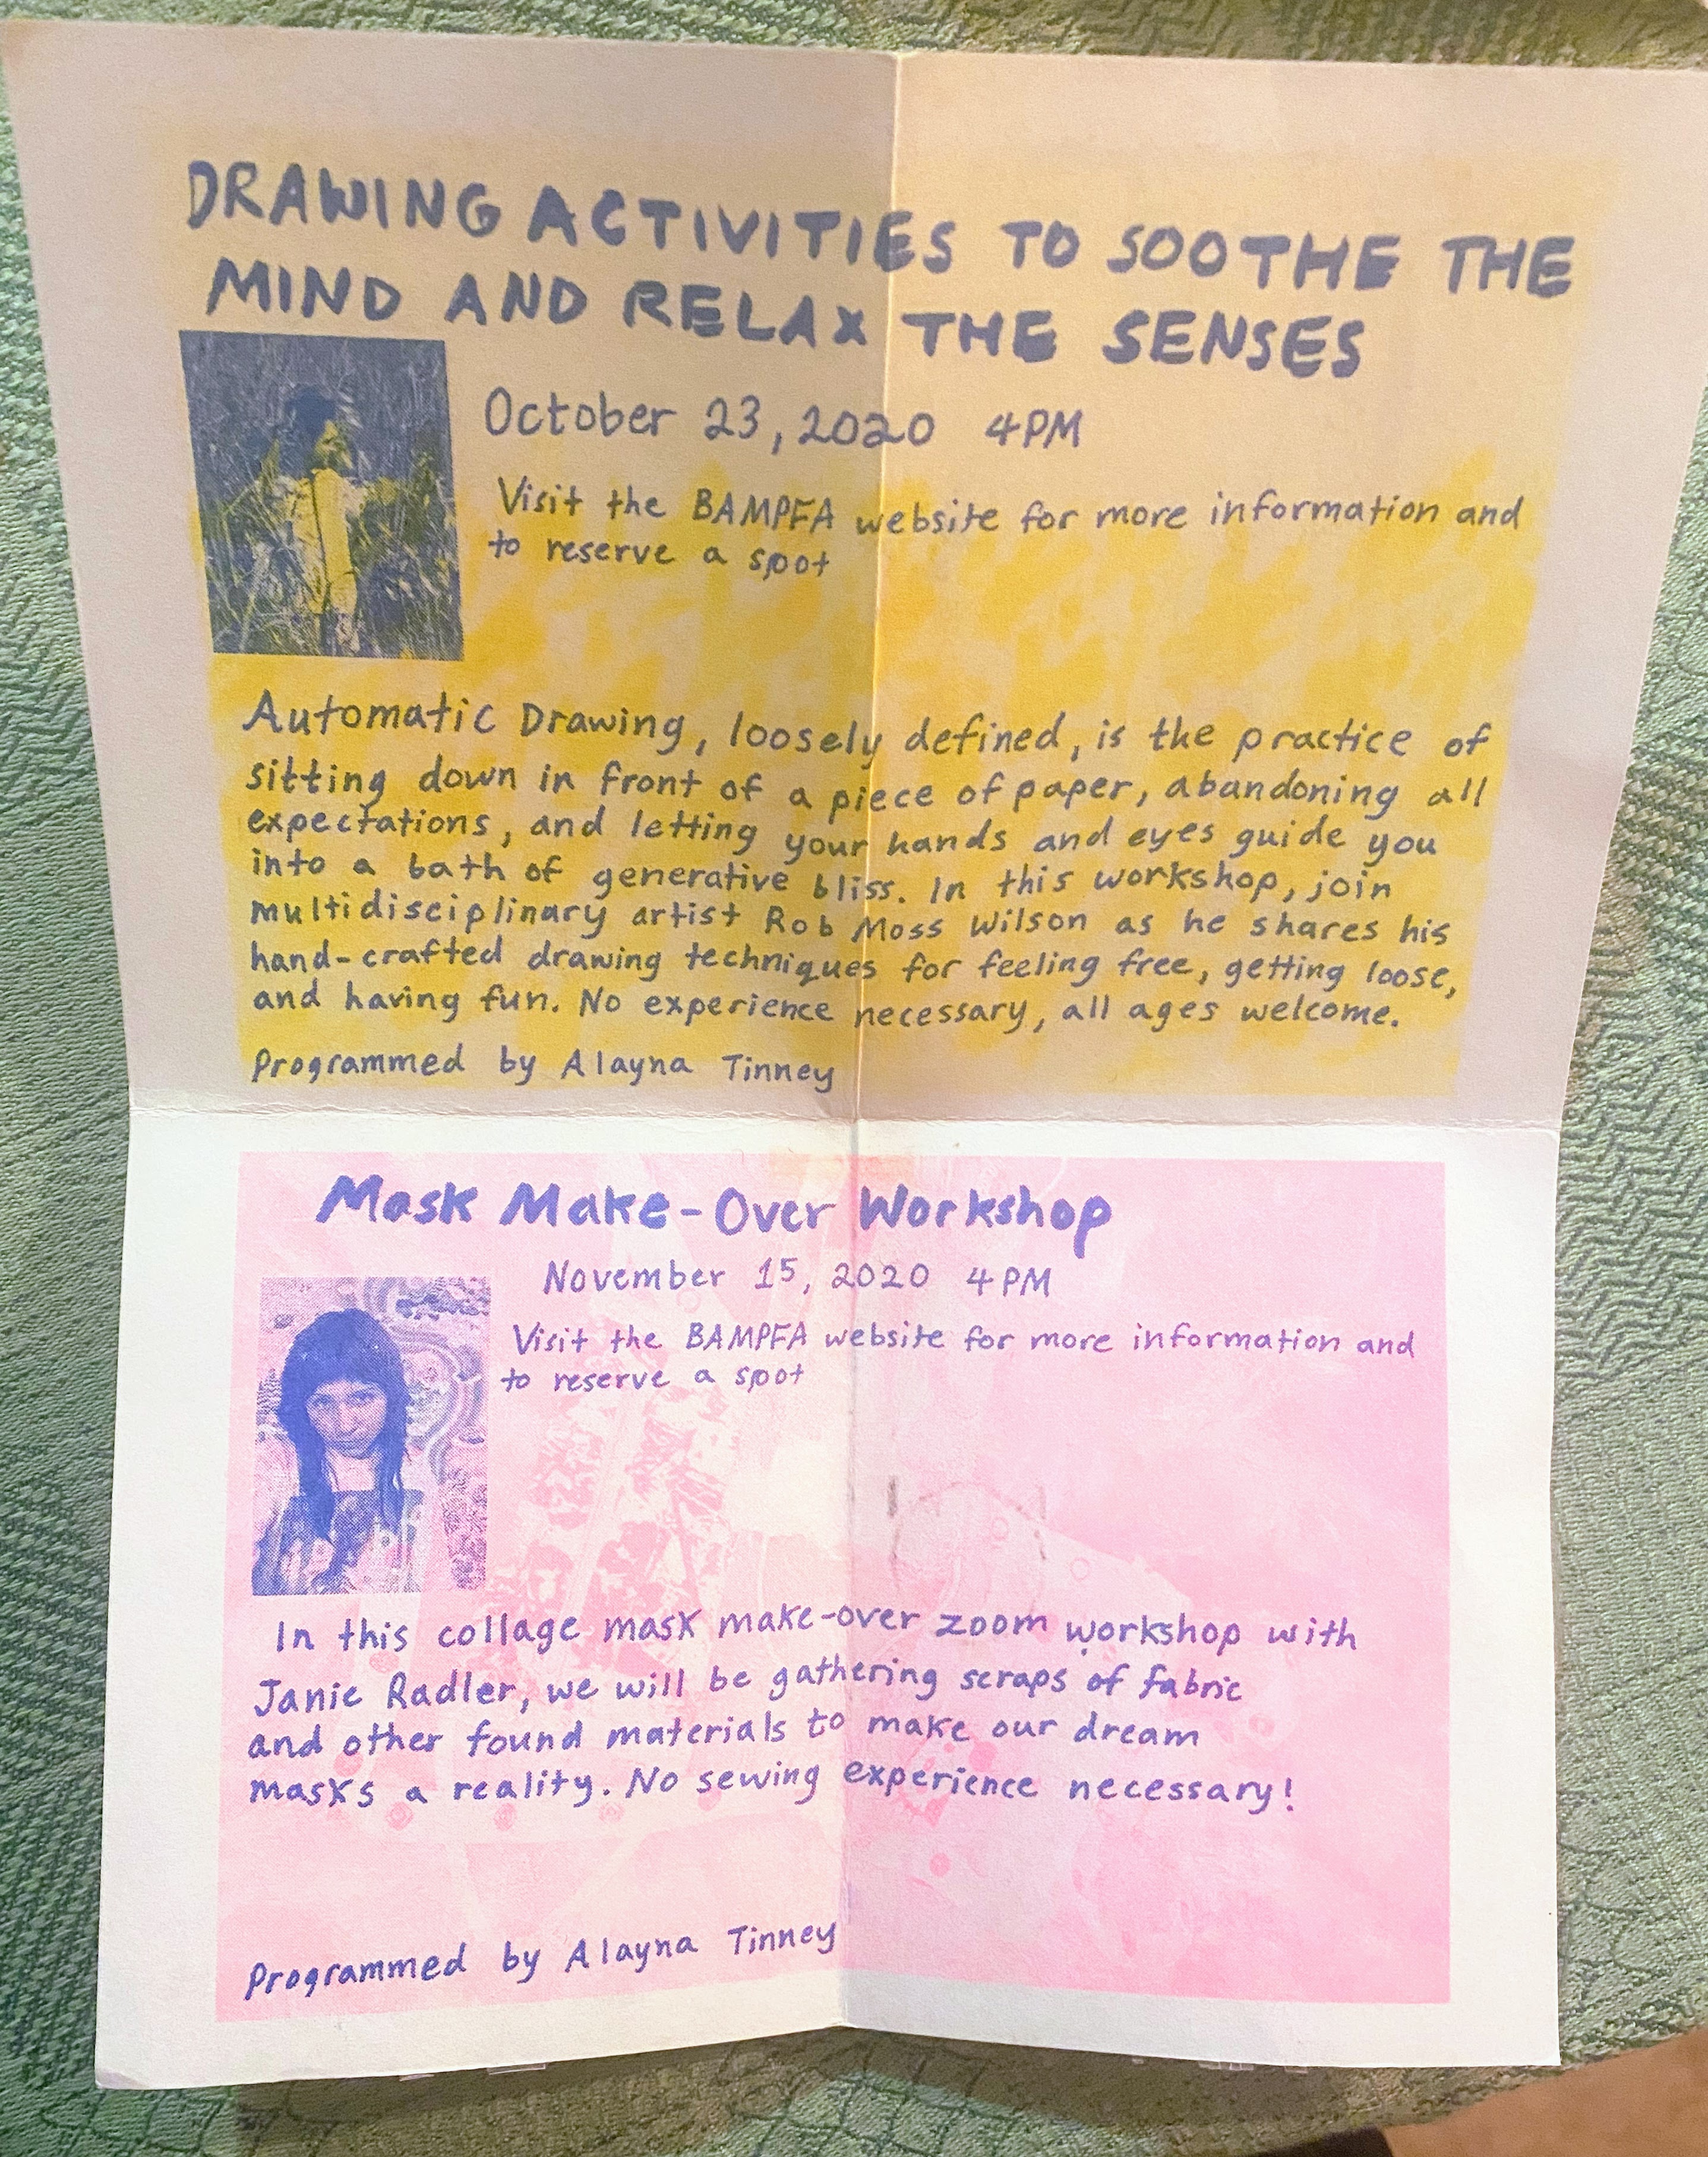 DRAWING ACTIVITIES TO SOOTHE THE
MIND AND RELAX THE SENSES
October 23, 2020 4PM
Visit the BAMPFA website for more information and
to reserve a spot
Automatic Drawing, loosely defined, is the practice of
sitting down in front of a piece of paper, abandoning all
expectations, and letting your hands and eyes guide you
into a bath of generative bliss. In this workshop, join
multidisciplinary artist Rob Moss Wilson as he shares his
hand-crafted drawing techniques for feeling free, getting loose,
and having fun. No experience necessary, all ages welcome.
Programmed by Alayna Tinney
Mask Make-Over Workshop
November 15, 2020 4PM
Visit the BAMPFA website for more information and
to reserve a spot
In this collage mask make-over zoom workshop with
Janie Radler, we will be gathering scraps of fabric
and other found materials to make our dream
masks a reality. No sewing experience necessary!
Programmed by Alayna Tinney